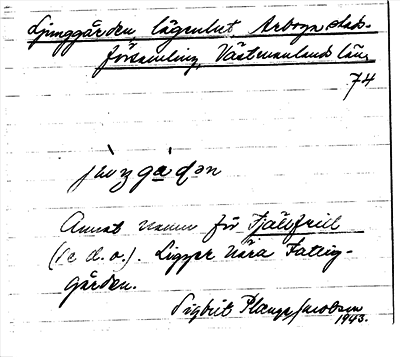 Ljunggården, lägenhet, Arboga stads-
församling, Västmanlands län,
74
Annat namn för Fjällfrid
(se d. o.). Ligger nära Fattig-
gården.
Sigbrit Plænge Jacobson
1943.